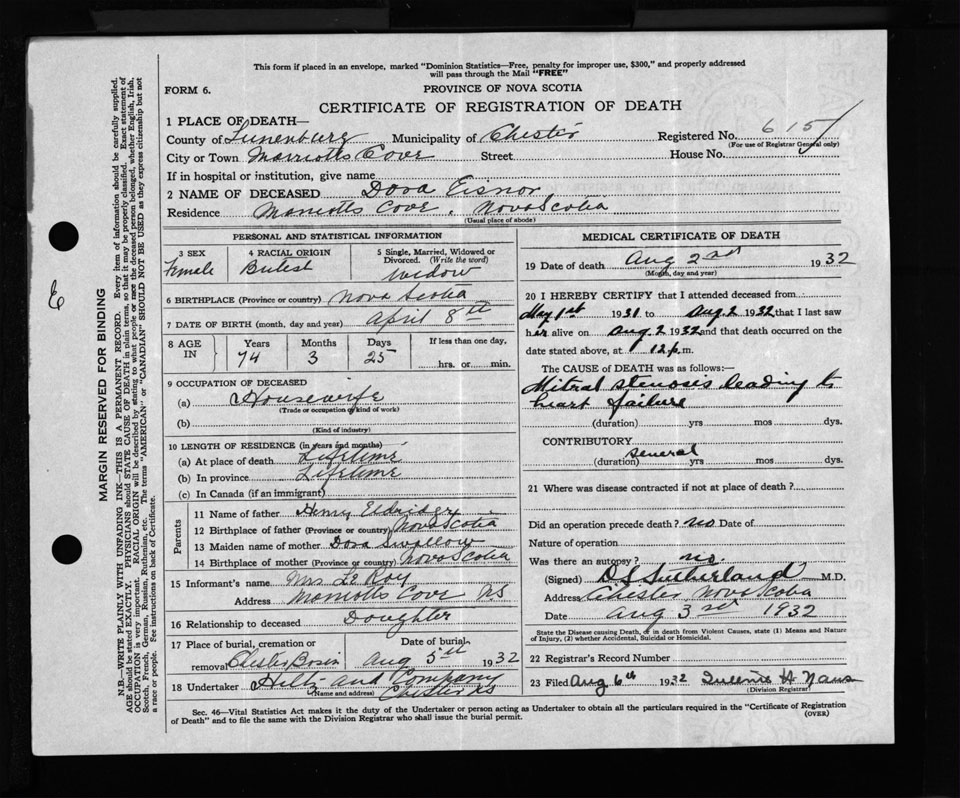 This form if placed in an envelope, marked "Dominion Statistics—Free, penalty for improper use, $300," and properly addressed
will pass through the Mail "FREE"
FORM 6.
PROVINCE OF NOVA SCOTIA
CERTIFICATE OF REGISTRATION OF DEATH
1 PLACE OF DEATH—
County of Lunenburg Municipality of Chester Registered No. 615
(For use of Registrar General only)
City or Town Marriotts Cove Street House No.
If in hospital or institution, give name
2 NAME OF DECEASED Dora Eisnor
Residence Marriotts Cove, Nova Scotia
(Usual place of abode)
PERSONAL AND STATISTICAL INFORMATION
3 SEX Female
4 RACIAL ORIGIN British
5 Single, Married, Widowed or Divorced. (Write the word) widow
6 BIRTHPLACE (Province or country) Nova Scotia
7 DATE OF BIRTH (month, day and year) April 8th
8 AGE IN Years 74 Months 3 Days 25 If less than one day, hrs. or min.
9 OCCUPATION OF DECEASED
(a) Housewife
(Trade or occupation or kind of work)
(b)
(Kind of industry)
10 LENGTH OF RESIDENCE (in years and months)
(a) At place of death Lifetime
(b) In province Lifetime
(c) In Canada (if an immigrant)
Parents
11 Name of father Henry
12 Birthplace of father (Province or country) Nova Scotia
13 Maiden name of mother Dora Swallow
14 Birthplace of mother (Province or country) Nova Scotia
15 Informant's name Mrs Le Roy
Address Marriotts Cove NS
16 Relationship to deceased Daughter
17 Place of burial, cremation or removal Chester Basin Date of burial Aug 5th 1932
18 Undertaker Hiltz and Company
(Name and address) Chester NS
MEDICAL CERTIFICATE OF DEATH
19 Date of death Aug 2nd 1932
(Month, day and year)
20 I HEREBY CERTIFY that I attended deceased from
May 1st 1931 to Aug. 2 1932 that I last saw
her alive on Aug 2 1932 and that death occurred on
the date stated above, at 12 p.m.
The CAUSE OF DEATH was as follows:—
Mitral stenosis leading to
heart failure
(duration) yrs mos dys.
CONTRIBUTORY
(duration) several yrs mos dys.
21 Where was disease contracted if not at place of death?
Did an operation precede death? no Date of
Nature of operation
Was there an autopsy? no.
(Signed) D S Sutherland M.D.
Address Chester Nova Scotia
Date Aug 3rd 1932
State the Disease causing Death, or in death from Violent Causes, state (1) Means and Nature
of Injury, (2) whether Accidental, Suicidal or Homicidal.
22 Registrar's Record Number
23 Filed Aug 6th 1932
(Division Registrar)
Sec. 46—Vital Statistics Act makes it the duty of the Undertaker or person acting as Undertaker to obtain all the particulars required in the "Certificate of Registration
of Death" and to file the same with the Division Registrar who shall issue the burial permit.
(OVER)
MARGIN RESERVED FOR BINDING
N.B.—WRITE PLAINLY WITH UNFADING INK—THIS IS A PERMANENT RECORD. Every item of information should be carefully supplied.
AGE should be stated EXACTLY. PHYSICIANS should STATE CAUSE OF DEATH in plain terms, so that it may be properly classified. Exact statement of
OCCUPATION is very important. RACIAL ORIGIN will be described by stating to what people or race the deceased person belonged, whether English, Irish,
Scotch, French, German, Russian, Ruthenian, etc. The terms "AMERICAN" or "CANADIAN" SHOULD NOT BE USED as they express citizenship but not
a race or people. See instructions on back of Certificate.